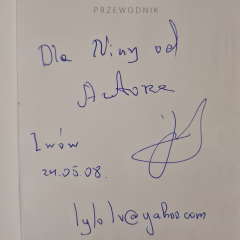 PRZEWODNIK
Dla Niny od
Autora
Lwów
24.05.08.
lylolv@yahoo.com